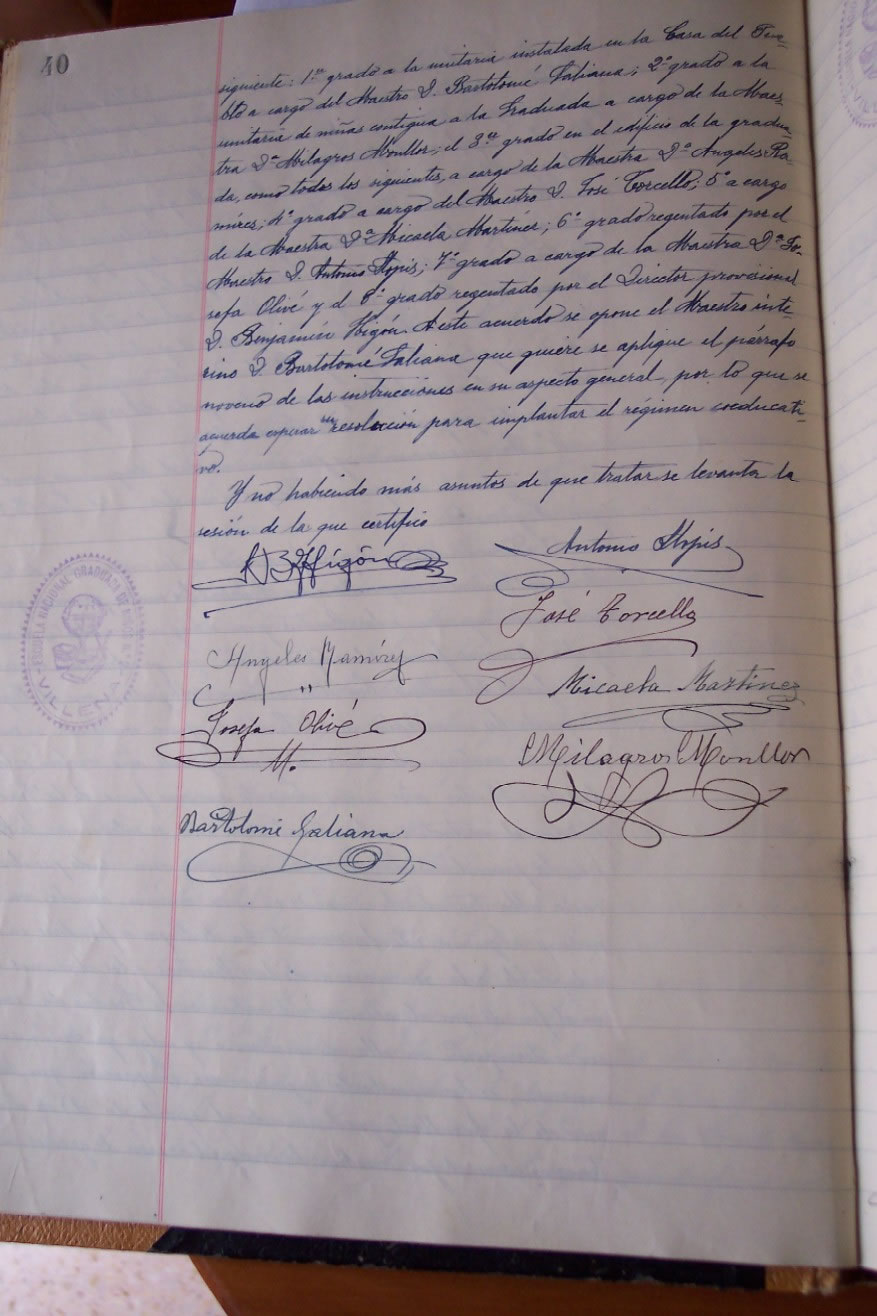 40
siguiente: 1er grado a la unitaria instalada en la Casa del Pue-
blo a cargo del Maestro D. Bartolomé Galiana; 2º grado a la
unitaria de niñas contigua a la Graduada a cargo de la Maes-
tra Dª Milagros Monllor; el 3er grado en el edificio de la gradua-
da, como todos los siguientes, a cargo de la Maestra Dª Angeles Ra-
mírez; 4º grado a cargo del Maestro D. José Torcello; 5º a cargo
de la Maestra Dª Micaela Martínez; 6º grado regentado por el
Maestro D. Antonio Llopis; 7º grado a cargo de la Maestra Dª Jo-
sefa Olivé y el 8º grado regentado por el Director provisional
D. Benjamín Higón. A este acuerdo se opone el Maestro inte-
rino D. Bartolomé Galiana que quiere se aplique el párrafo
noveno de las instrucciones en su aspecto general, por lo que se
acuerda esperar su resolución para implantar el régimen coeducati-
vo.
Y no habiendo más asuntos de que tratar se levanta la
sesión de la que certifico
Higón
Antonio Llopis
José Torcello
Angeles Ramírez
Micaela Martinez
Josefa Olivé
M.
Milagros Monllor
Bartolomé Galiana
ESCUELA NACIONAL GRADUADA DE
VILLENA